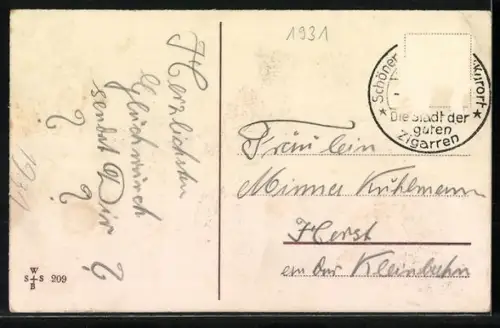 1931
Herzlichsten
Glückwunsch
sendet Dir
? ? ?
1931
Schöner
Kurort
Die Stadt der
guten
Zigarren
Fräulein
Minna Kuhlmann
Horst
an der Kleinbahn
W
S S
B
209